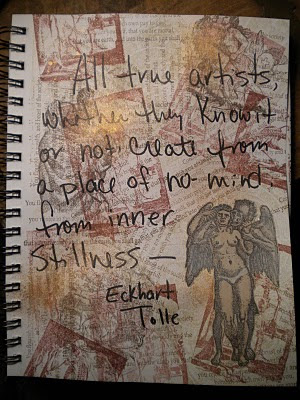 All true artists,
whether they know it
or not, create from
a place of no-mind,
from inner
Stillness —
Eckhart
Tolle